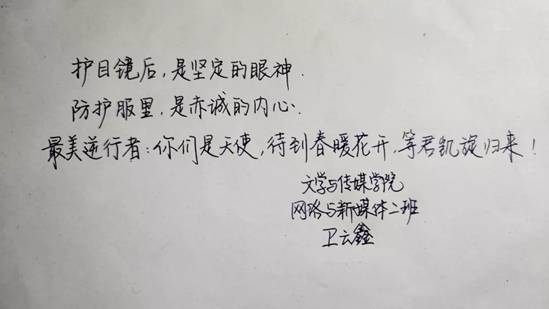 护目镜后，是坚定的眼神.
防护服里，是赤诚的内心.
最美逆行者：你们是天使，待到春暖花开，等君凯旋归来！
文学与传媒学院
网络与新媒体二班
卫云鑫